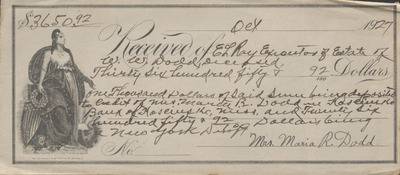 $3650.92 Oct 1927
Received of E L Ray Executor of Estate of
W. W. Dodd, deceased,
Thirty Six hundred, fifty & 92/100 Dollars
One Thousand Dollars of Said Sum being deposited
to credit of Mrs. Maria R. Dodd in
Bank of Kosciusko, Miss, and Twenty Six
hundred fifty & 92 Dollars being
in New York
No. Mrs. Maria R. Dodd